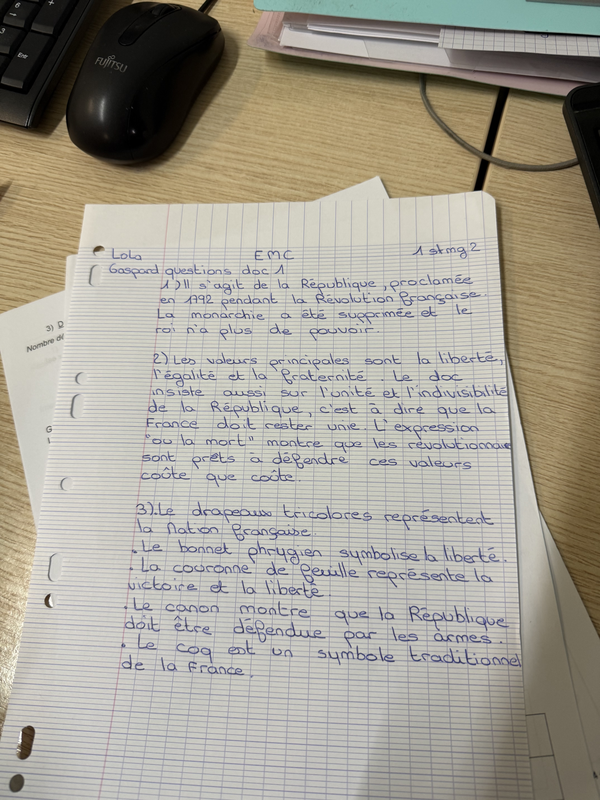 FUJITSU
6
3
Entr
Lola EMC 1 stmg 2
Gaspard questions doc 1
1) Il s'agit de la République, proclamée
en 1792 pendant la Révolution française.
La monarchie a été supprimée et le
roi n'a plus de pouvoir.
2) Les valeurs principales sont la liberté,
l'égalité et la fraternité. Le doc
insiste aussi sur l'unité et l'indivisibilité
de la République, c'est à dire que la
France doit rester unie. L'expression
"ou la mort" montre que les révolutionnaire
sont prêts à défendre ces valeurs
coûte que coûte.
3). Le drapeaux tricolores représentent
la Nation française.
. Le bonnet phrygien symbolise la liberté.
. La couronne de feuille représente la
victoire et la liberté
. Le canon montre que la République
doit être défendue par les armes.
. Le coq est un symbole traditionnel
de la France.
3) D
Nombre de